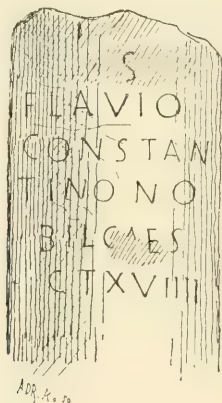 S
FLAVIO
CONSTAN
TINO NO
BIL CAES
CTXVIIII
ADR. K. 59